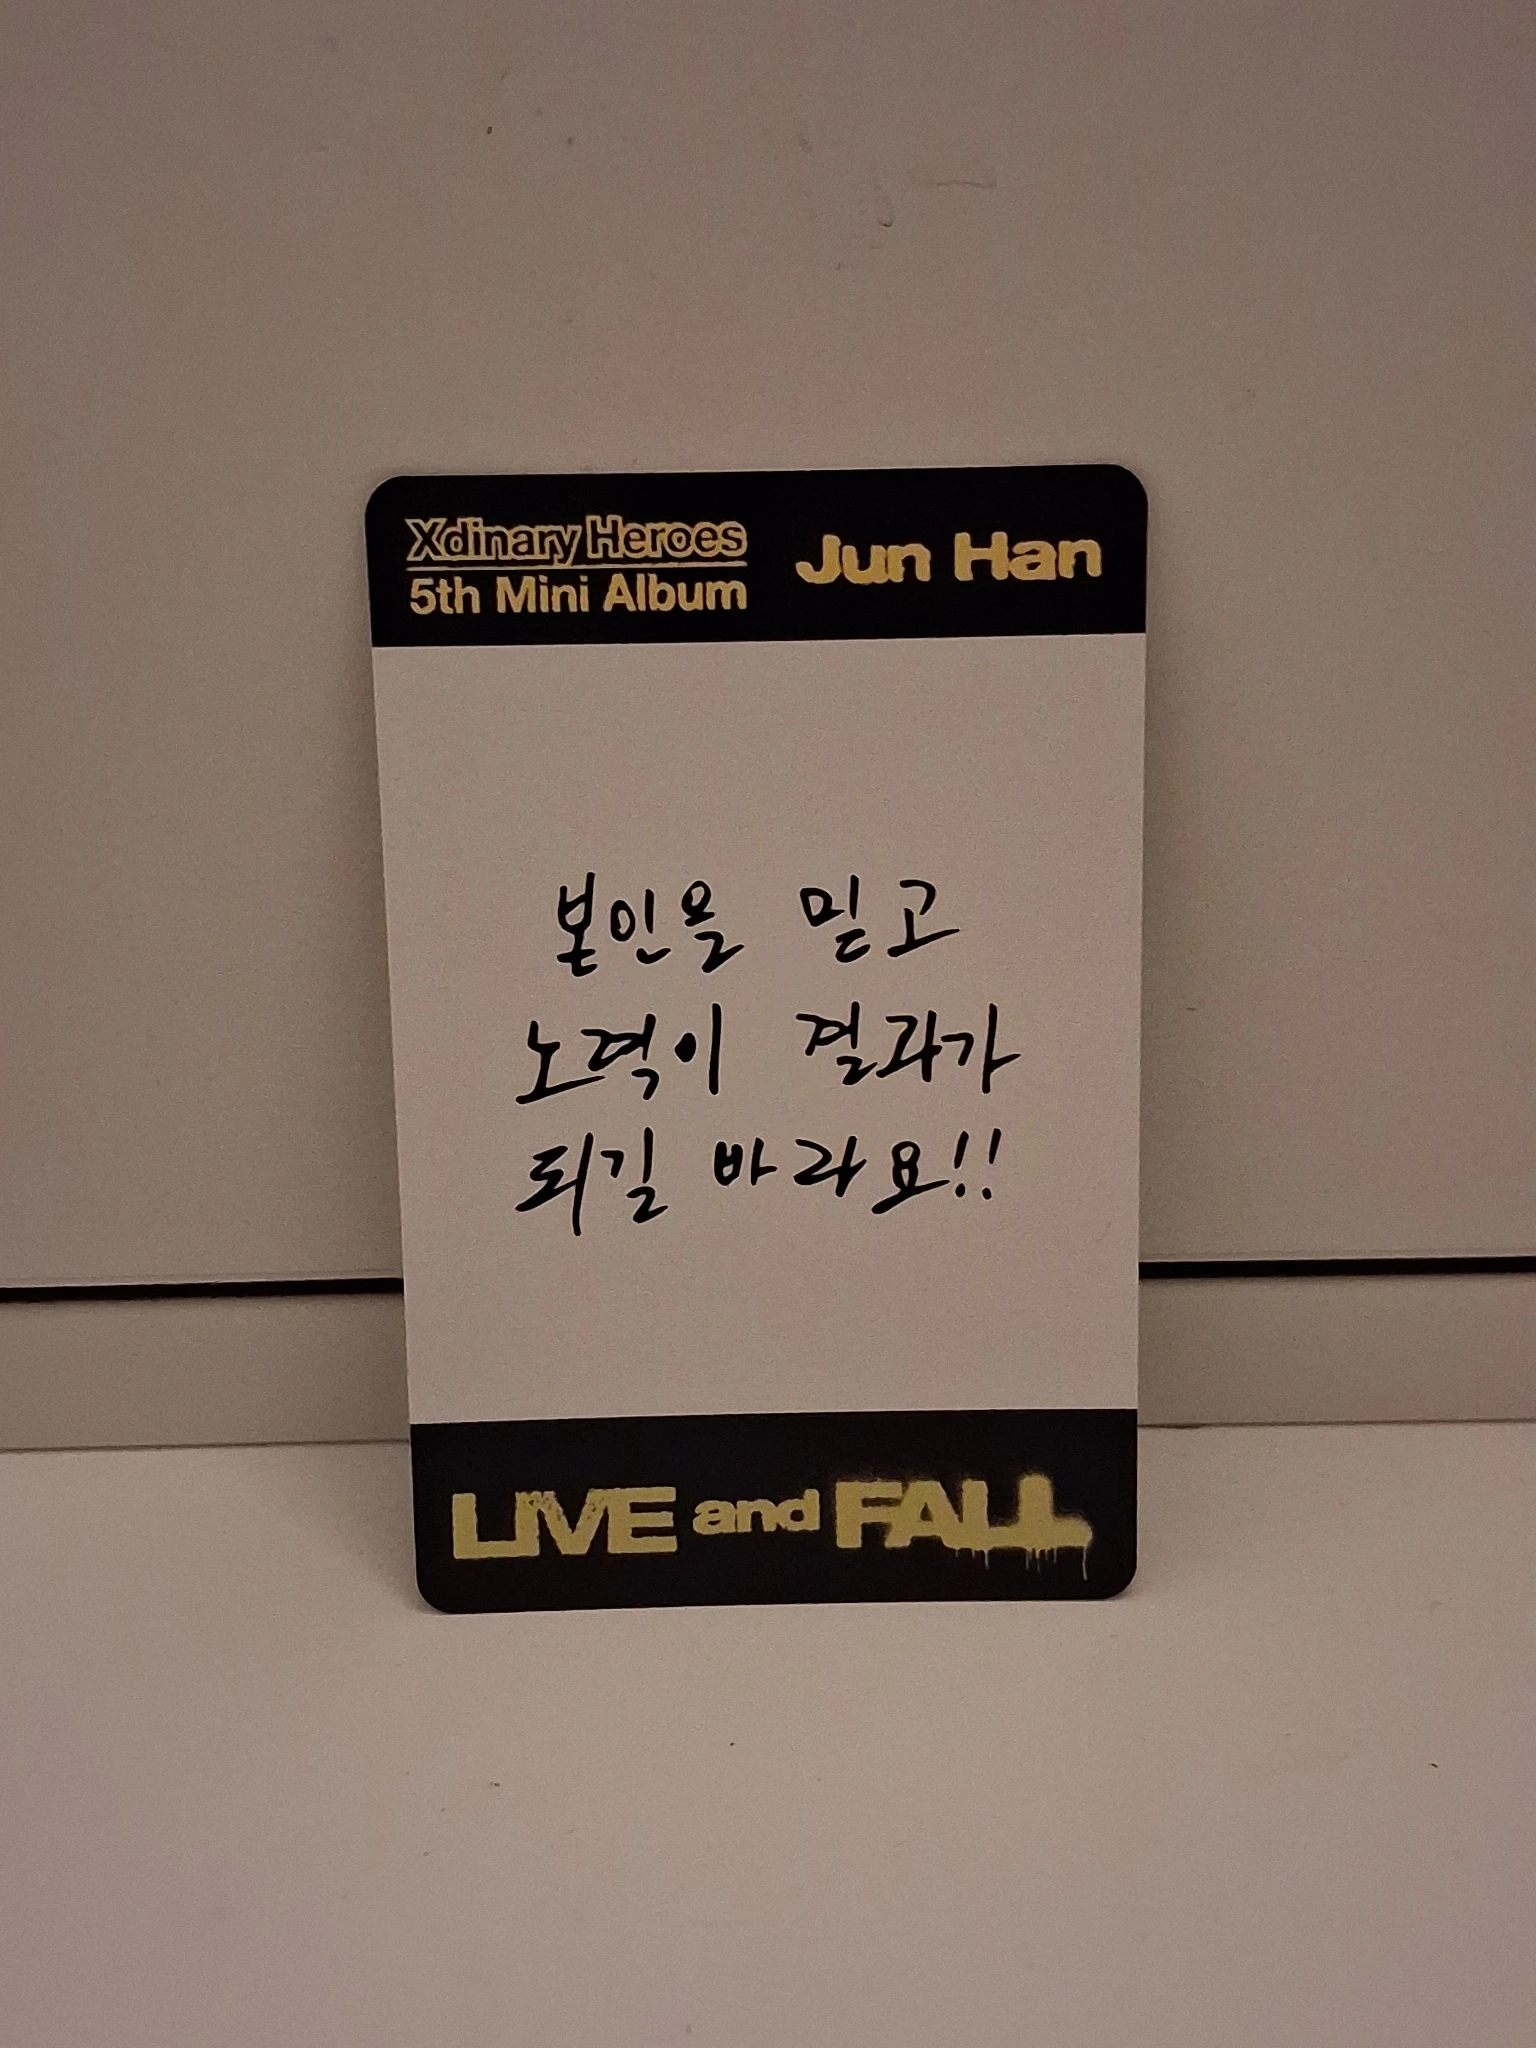 Xdinary Heroes
5th Mini Album
Jun Han
본인을 믿고
노력이 결과가
되길 바라요!!
LIVE and FALL